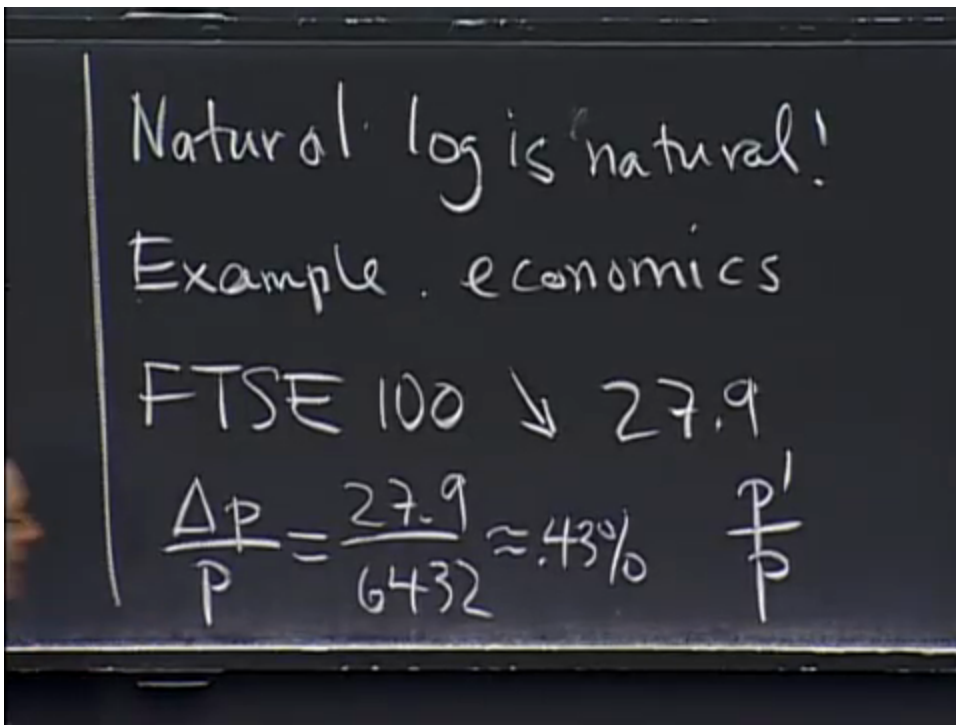 Natural log is natural!
Example. economics
FTSE 100 ↘ 27.9
Δp/p = 27.9/6432 ≈ .43% p'/p